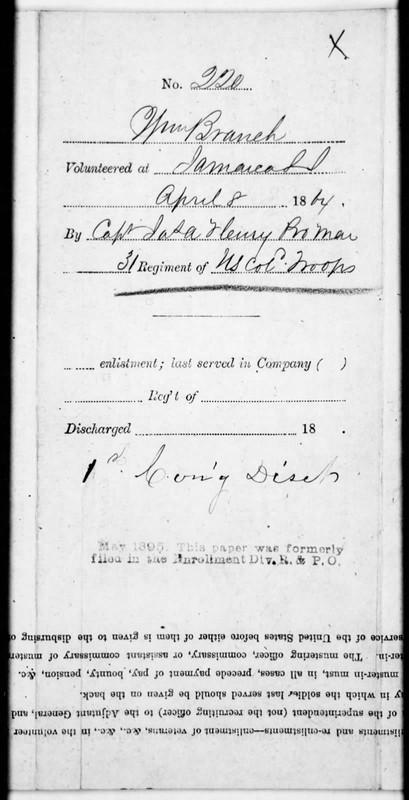 X.
No. 220
Wm Branch
Volunteered at Jamaica L I
April 8 1864.
By Capt Henry Pro Mar
31 Regiment of US Col'd Troops
enlistment; last served in Company ( )
Reg't of
Discharged 18 .
1st Con'g Dist
May 1895. This paper was formerly
filed in the Enrollment Div. R. & P. O.
listments and re-enlistments—enlistment of veterans, &c., &c., in the volunteer
of the superintendent (not the recruiting officer) to the Adjutant General, and
y in which the soldier last served should be given on the back.
muster-in must, in all cases, precede payment of pay, bounty, pension, &c.
ter-in. The mustering officer, commissary, or assistant commissary of muster
service of the United States before either of them is given to the disbursing o